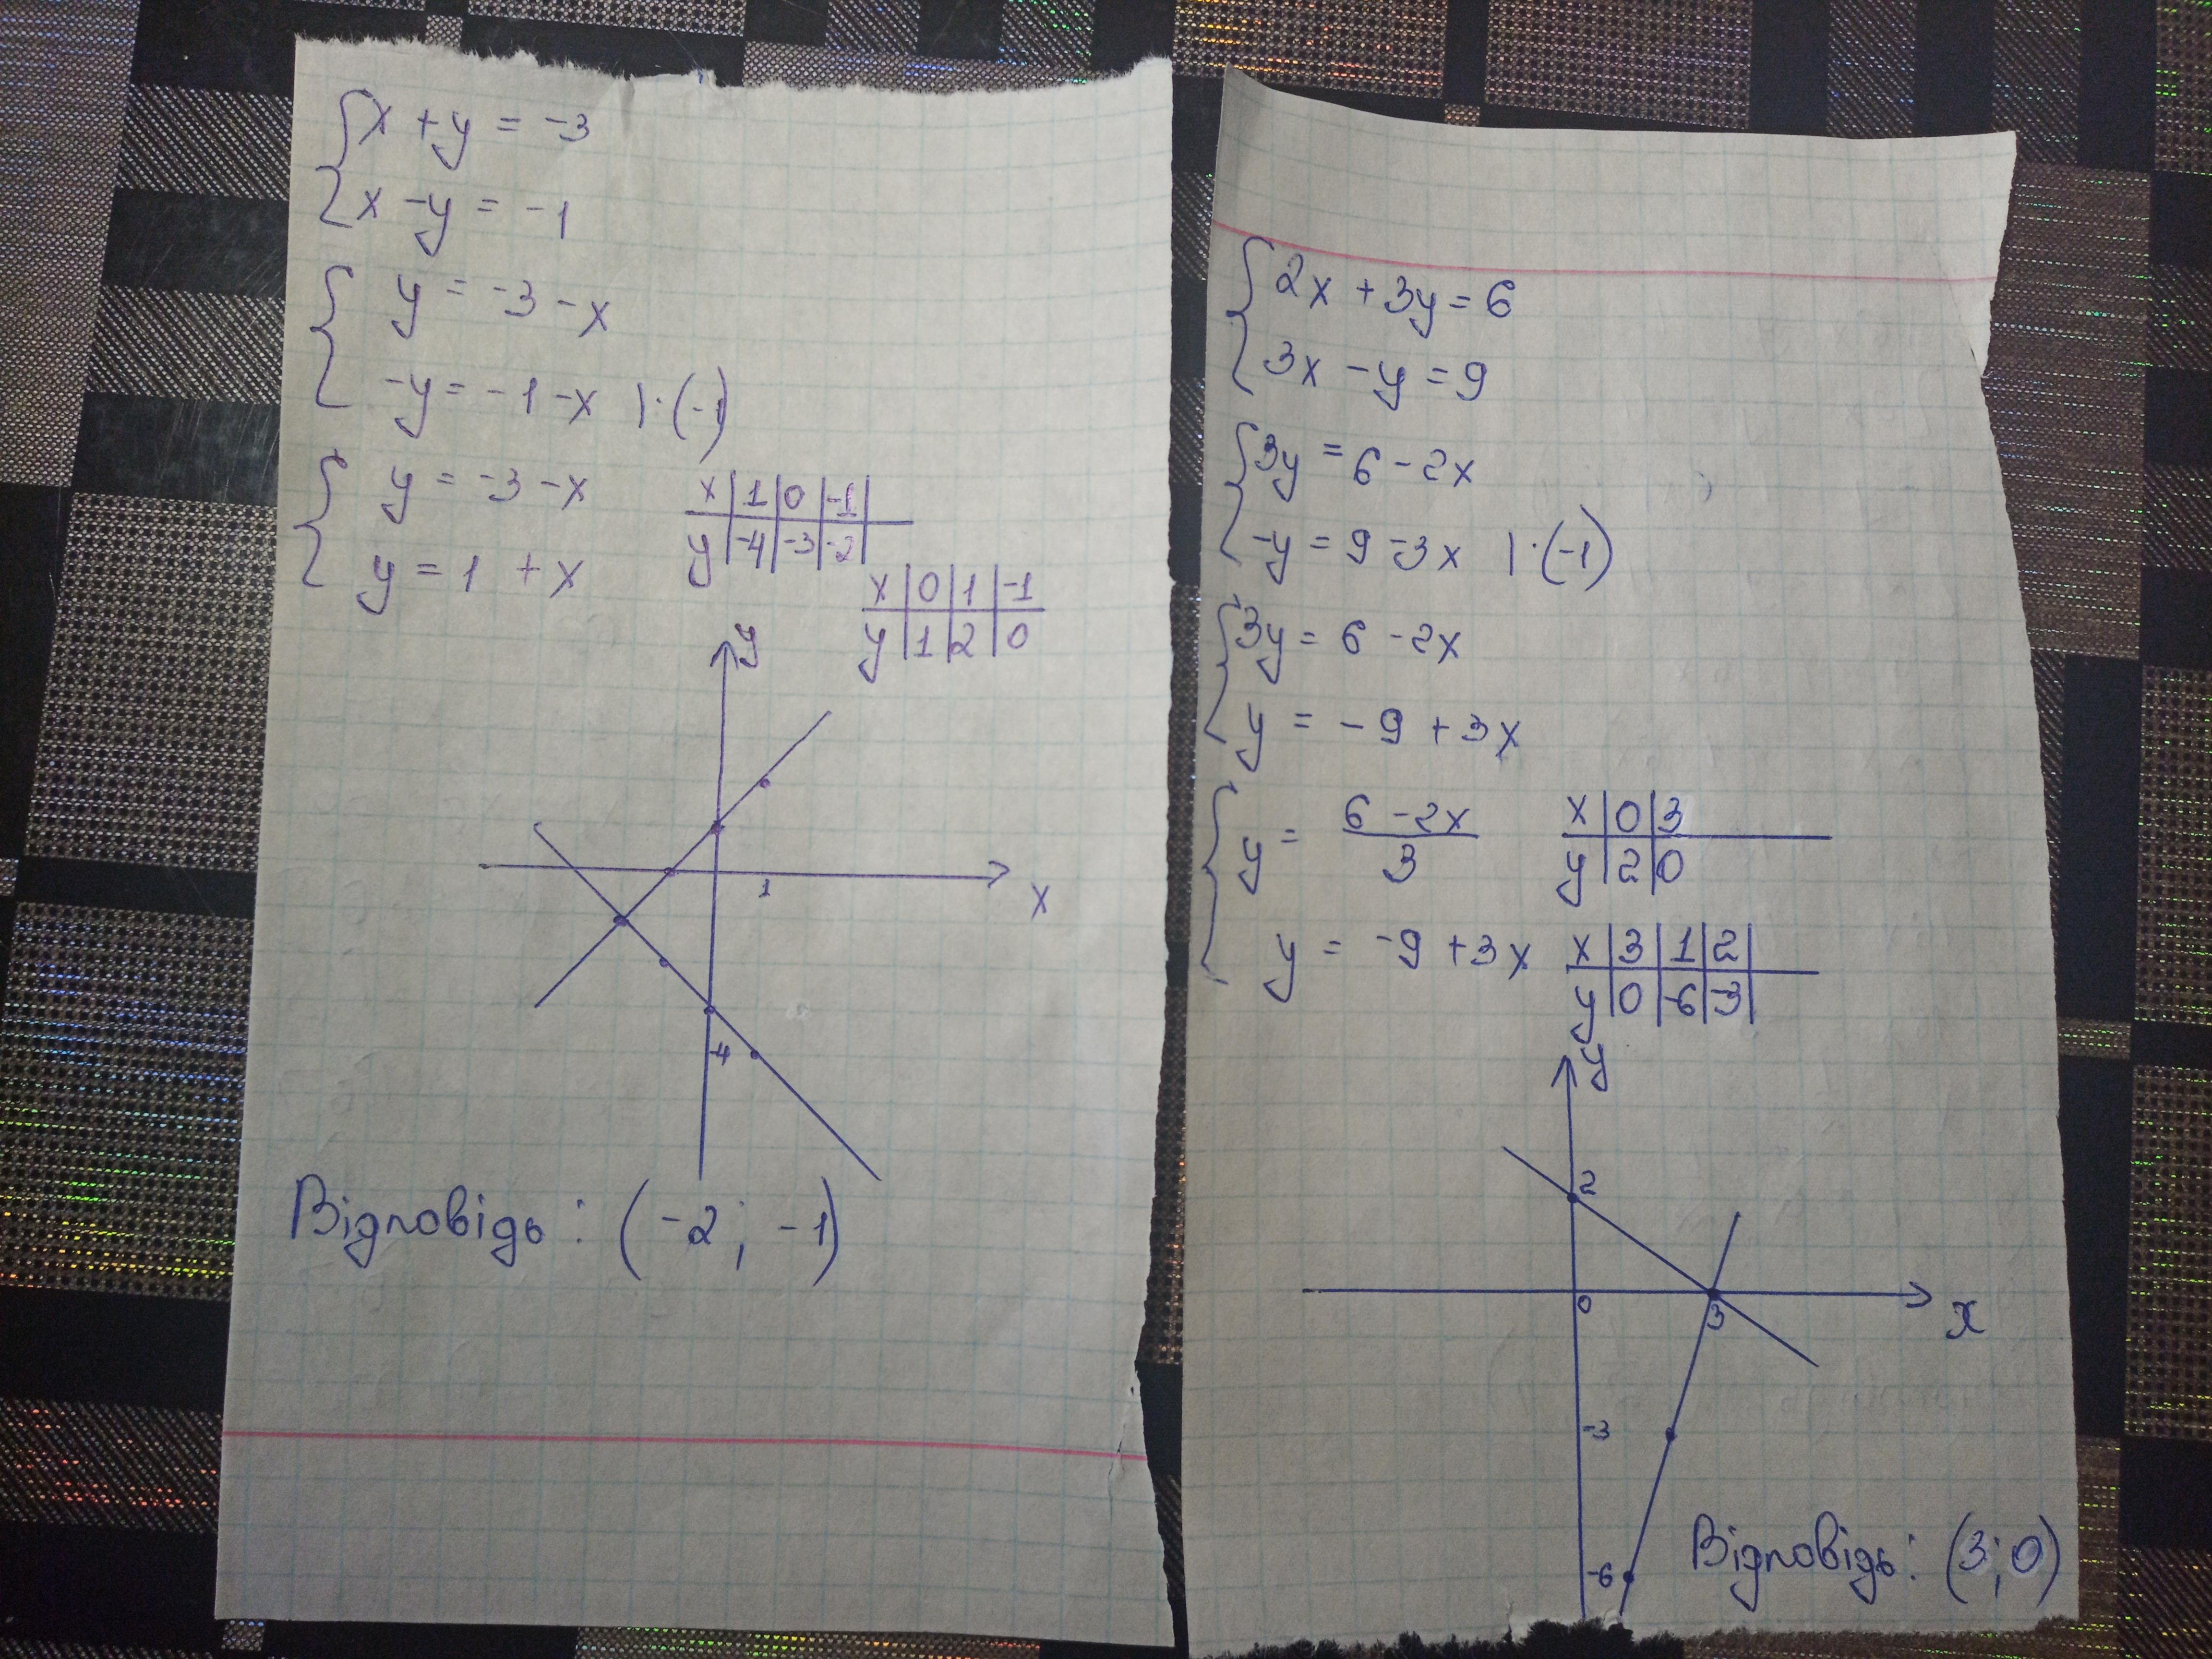 x + y = -3
x - y = -1
y = -3 - x
-y = -1 - x |·(-1)
y = -3 - x
y = 1 + x
x | 1 | 0 | -1 |
y | -4 | -3 | -2 |
x | 0 | 1 | -1
y | 1 | 2 | 0
y
1
x
-4
Відповідь: (-2; -1)
2x + 3y = 6
3x - y = 9
3y = 6 - 2x
-y = 9 - 3x |·(-1)
3y = 6 - 2x
y = -9 + 3x
y = (6 - 2x)/3
x | 0 | 3
y | 2 | 0
y = -9 + 3x
x | 3 | 1 | 2 |
y | 0 | -6 | -3 |
y
2
0
3
x
-3
-6
Відповідь: (3; 0)